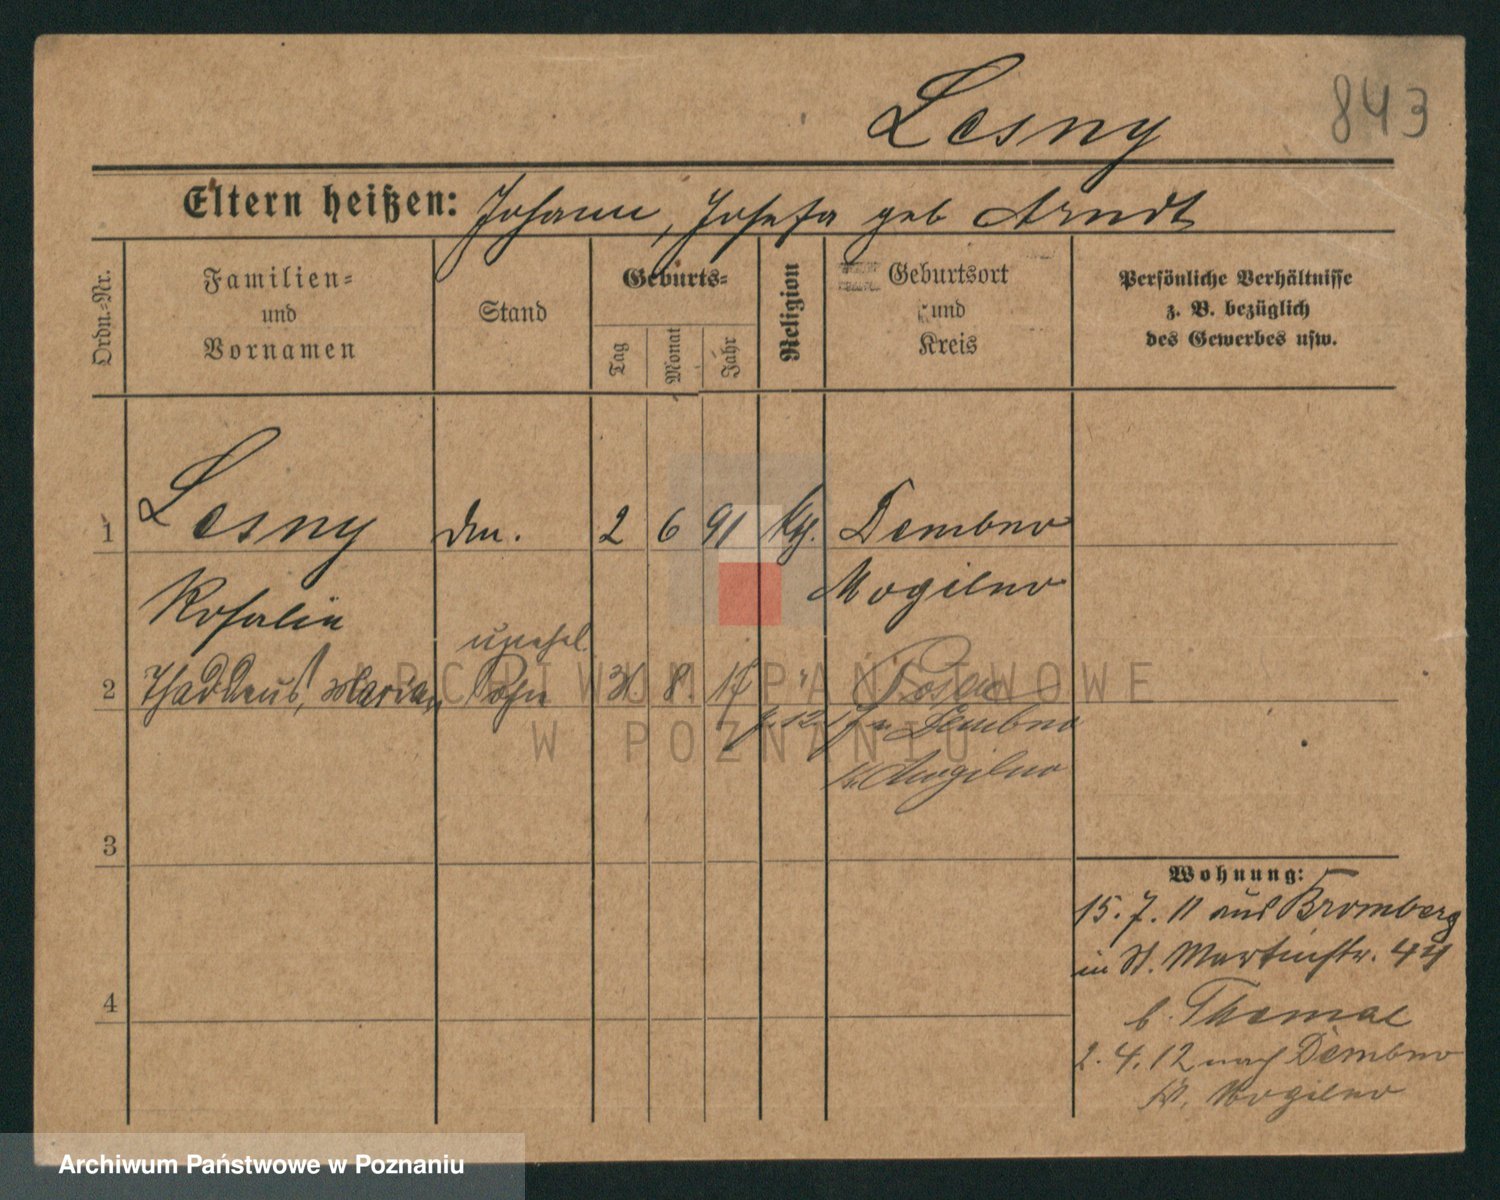 Lesny
843
Eltern heißen: Johann, Josefa geb Arndt
Ordn.=Nr.
Familien=
und
Vornamen
Stand
Geburts=
Tag
Monat
Jahr
Religion
Geburtsort
und
Kreis
Persönliche Verhältnisse
z. B. bezüglich
des Gewerbes usw.
1 Lesny 2 6 91 Kth. Dembno
Mogilno
Rosalie
unehel.
2 Thaddeus, Marian Sohn 31. 8. 17 " Posen
Dembno
Kr. Mogilno
3
4
Wohnung:
15. 7. 11 aus Bromberg
in St. Martinstr. 44
b. Thomae
2. 4. 12 nach Dembno
Kr. Mogilno
ARCHIWUM PAŃSTWOWE
W POZNANIU
Archiwum Państwowe w Poznaniu